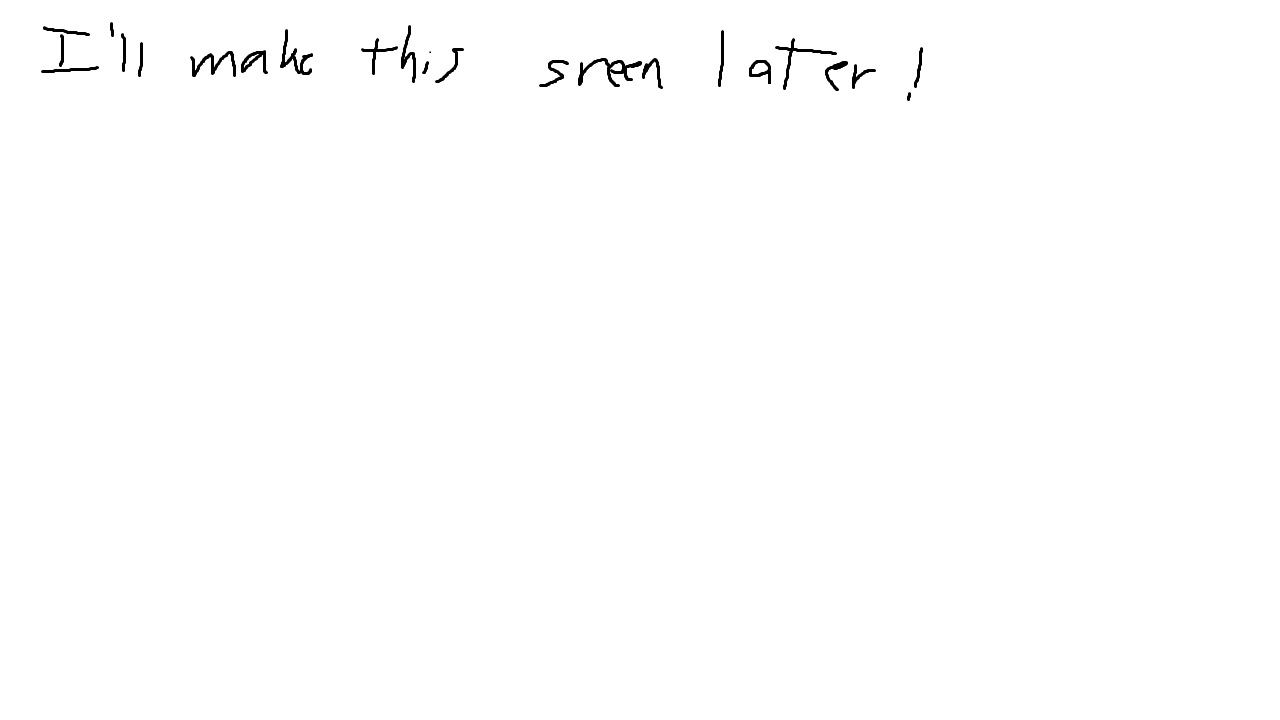 I'll make this sreen later!